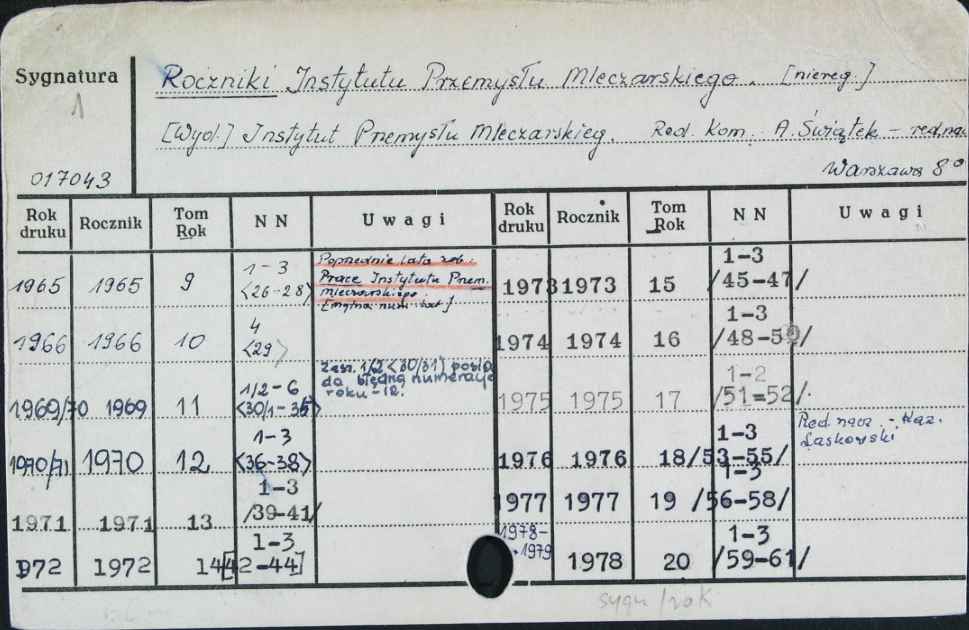 Sygnatura
1
017043
Roczniki Instytutu Przemysłu Mleczarskiego. [niereg.]
[Wyd.] Instytut Przemysłu Mleczarskieg. Red. Kom. A. Świątek – red. nac
Warszawa 8°
Rok druku Rocznik Tom Rok N N Uwagi Rok druku Rocznik Tom Rok N N Uwagi
1965 1965 9 1-3 <26-28> Poprzednie lata zob. Prace Instytutu Przem. mleczarskiego
1966 1966 10 4 <29>
1969/70 1969 11 1/2-6 <30/1-35> Zesz. 1/2 <30/31> posia da błędną numerację roku -12.
1970/71 1970 12 1-3 <36-38>
1971 1971 13 1-3 /39-41/
1972 1972 14 1-3 [42-44]
1973 1973 15 1-3 /45-47/
1974 1974 16 1-3 /48-50/
1975 1975 17 1-2 /51=52/
1976 1976 18 1-3 /53-55/ Red. nacz. - Kaz. Laskowski
1977 1977 19 1-3 /56-58/
1978-1979 1978 20 1-3 /59-61/
sygn/rok